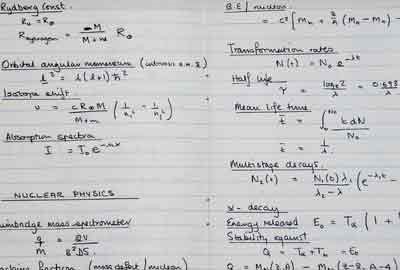 Rydberg Const.
R∞ = R∞
R Hydrogen = ∞M / M+m R∞
Orbital angular momentum
l² = l(l+1) ħ²
Isotope shift.
ν = cR∞M / M+m (1/n₁² - 1/n₂²)
Absorption spectra
I = I₀ e^-nx
NUCLEAR PHYSICS
mass spectrometer
q/m = 2V / B²DS.
fraction (mass defect / nucleon)
B.E / nucleon
= c² [ Mn + Z/A (MH - Mn) -
Transformation rates.
N(t) = N₀ e^-λt
Half life
τ = loge2 / λ = 0.693 / λ
Mean life time
t̄ = ∫₀^N₀ t dN / N₀
t̄ = 1/λ
Multistage decays.
N₂(t) = N₁(0) λ₁ / λ₂ - λ ( e^-λ₁t -
α - decay
Energy released E₀ = Tα ( 1 +
Stability against
Q = Tα + Tb = E₀
Q = (Z, A) - (Z-2, A-4)